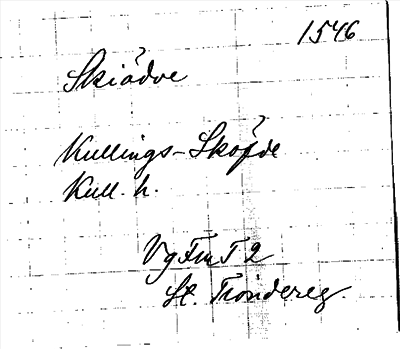 1546
Skiödve
Kullings-Skövde
Kull. h.
VgFmT 2
St. Tiondereg.